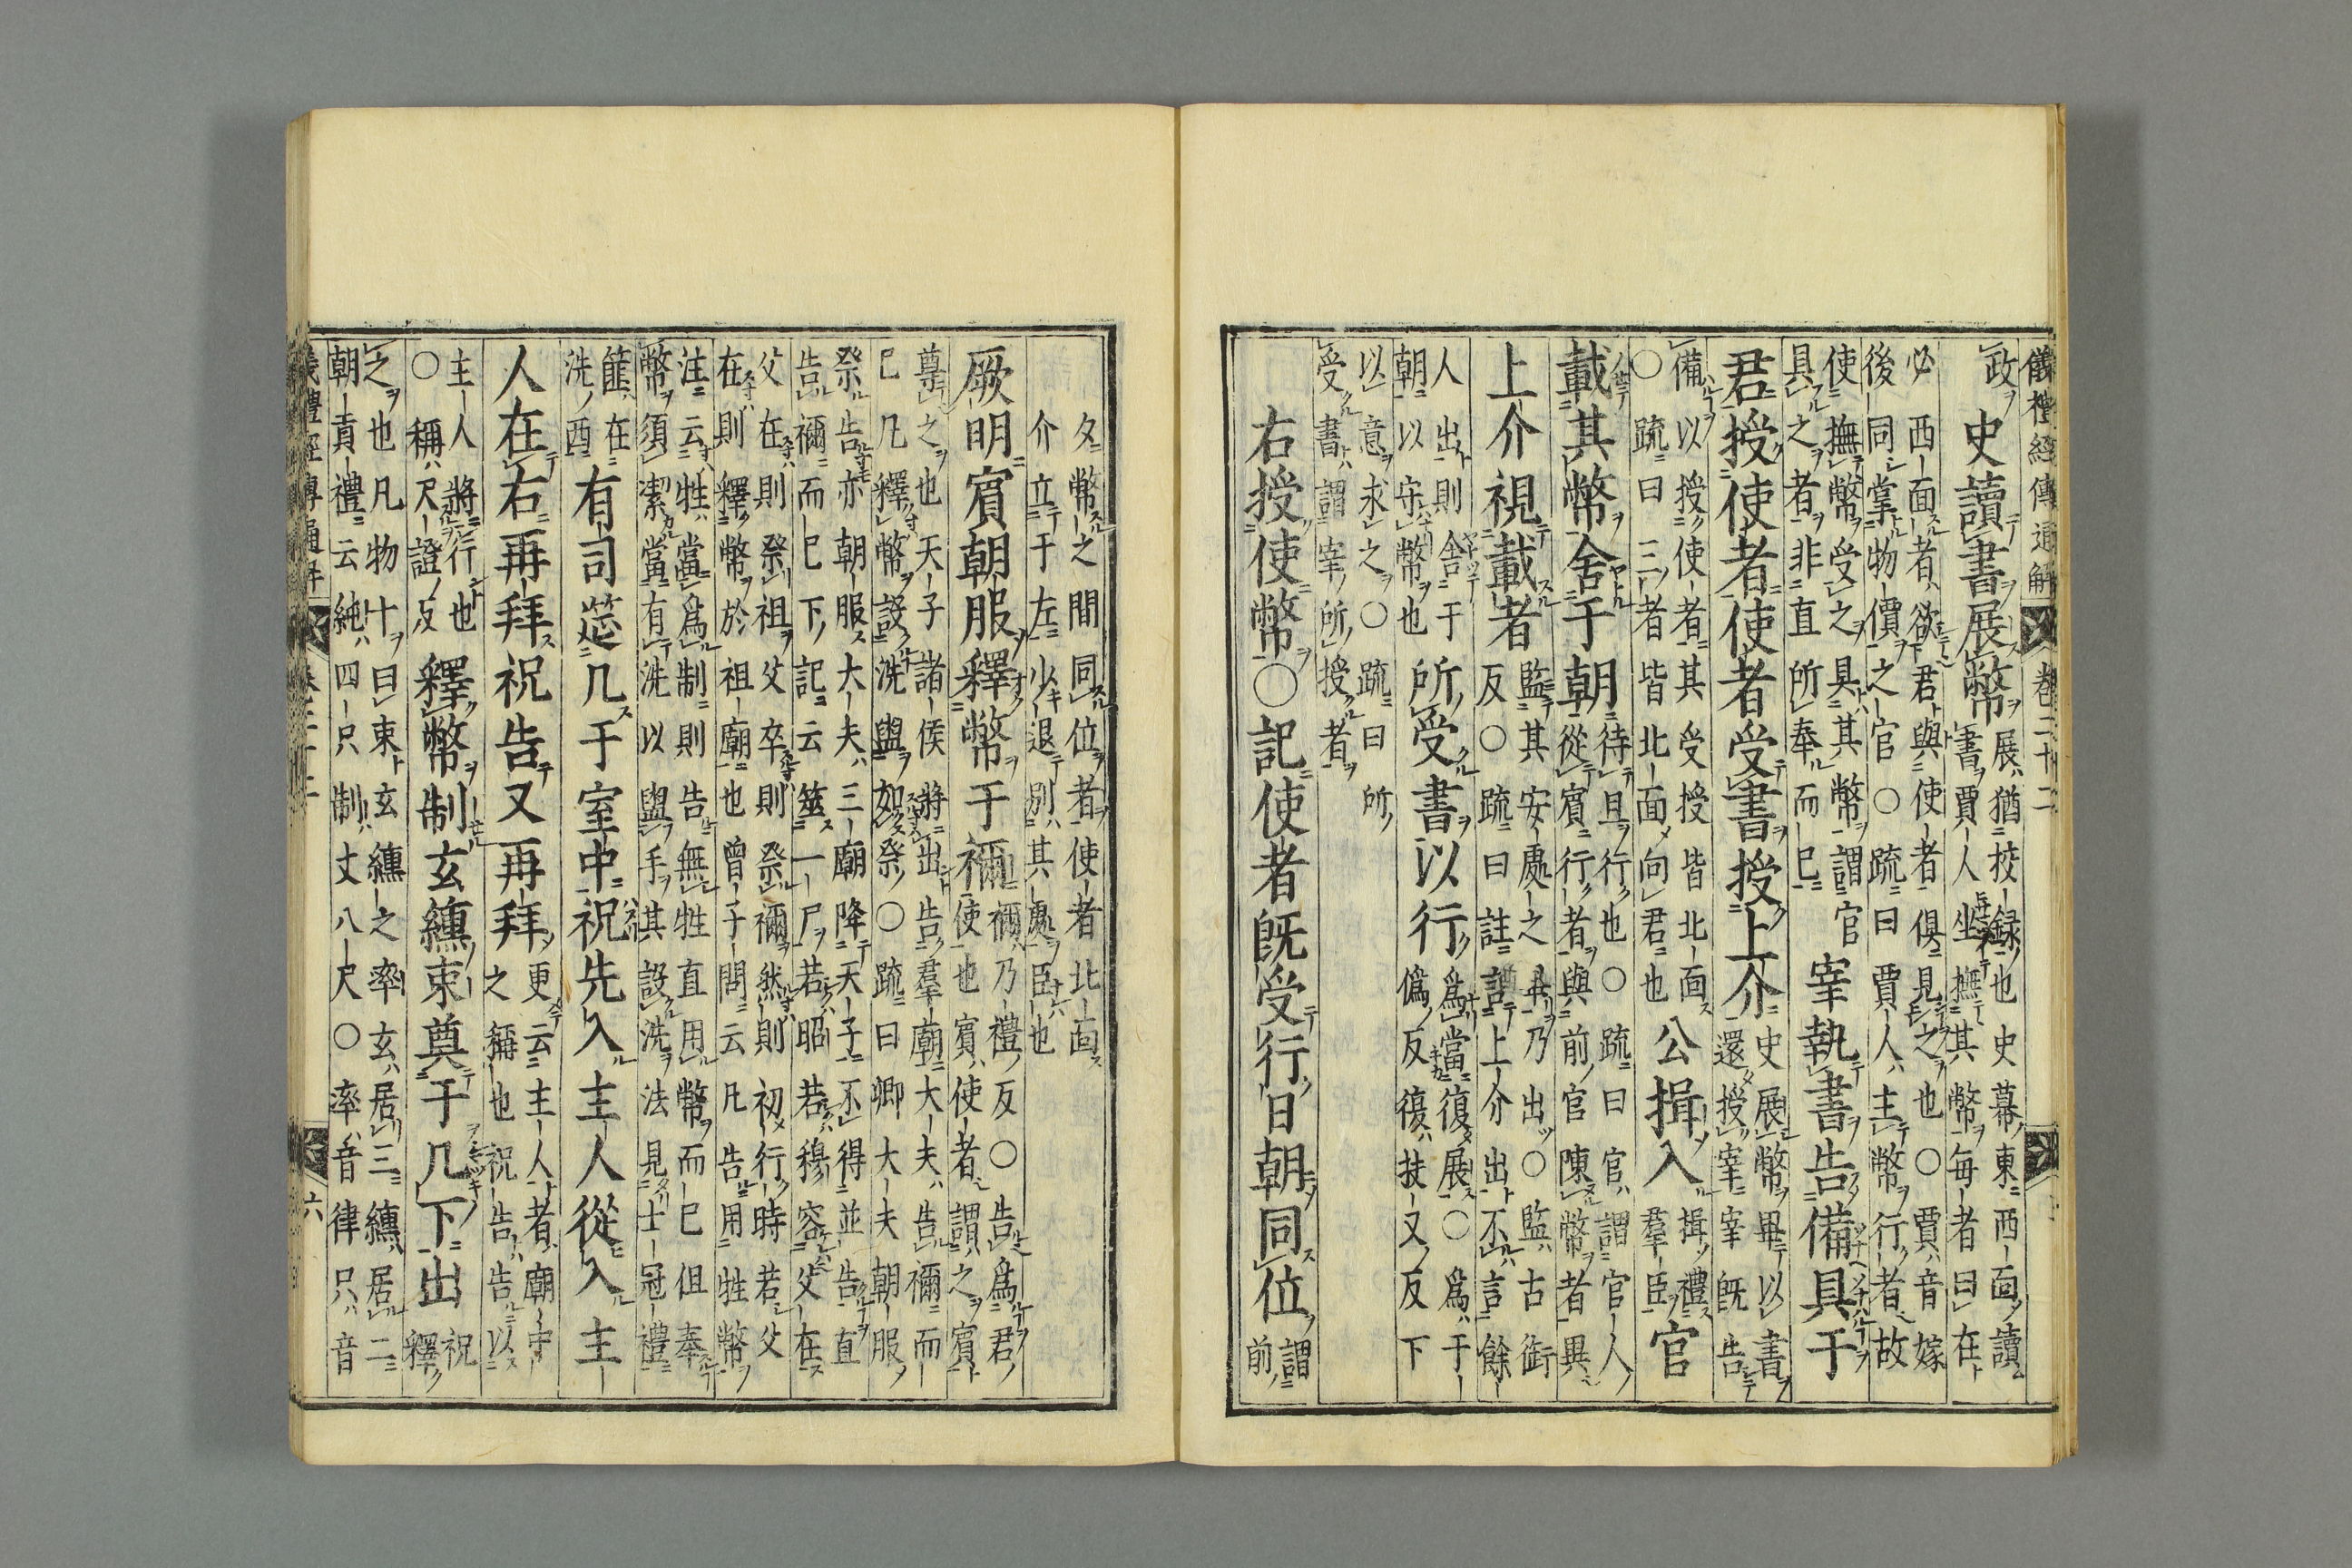 儀禮經傳通解 卷二十二
政
史讀書展幣
展猶挍録也史幕東西面讀
書賈人坐撫其幣每者曰在
必西面者欲君與使者俱見之也○賈音嫁
後同掌物價之官○疏曰賈人主幣行者故
使撫幣受之具其幣謂官
具之者非直所奉而已
宰執書告備具于
君授使者使者受書授上介
史展幣畢以書
還授宰宰既告
備以授使者其受授皆北面
○疏曰三者皆北面向君也
公揖入
揖禮
羣臣
官
載其幣舍于朝
待旦行也○疏曰官謂官人
從賓行者與前官陳幣者異
上介視載者
監其安處之畢乃出○監古銜
反○疏曰註謂上介出不言餘
人出則舍于
朝以守幣也
所受書以行
爲當復展○爲于
僞反復扶又反下
以意求之○疏曰所
受書謂宰所授者
右授使幣○記使者既受行日朝同位
謂
前
夕幣之間同位者使者北面
介立于左少退別其處臣也
厥明賓朝服釋幣于禰
禰乃禮反○告爲君
使也賓使者謂之賓
尊之也天子諸侯將出告羣廟大夫告禰而
已凡釋幣設洗盥如祭○疏曰卿大夫朝服
祭告亦朝服大夫三廟降天子不得並告直
告禰而已下記云筮一尸若昭若穆容父在
父在則祭祖父卒則祭禰然則初行時若父
在則釋幣於祖廟也曾子問云凡告用牲幣
注云牲當爲制則告無牲直用幣而已但奉
幣須潔當有洗以盥手其設洗法見士冠禮
篚在
洗西
有司筵几于室中祝先入主人從入主
人在右再拜祝告又再拜
更云主人者廟中
之稱也祝告告以
主人將行也
○稱尺證反
釋幣制玄纁束奠于几下出
祝
釋
之也凡物十曰束玄纁之率玄居三纁居二
朝貢禮云純四只制丈八尺○率音律只音
儀禮經傳通解 卷二十二 六